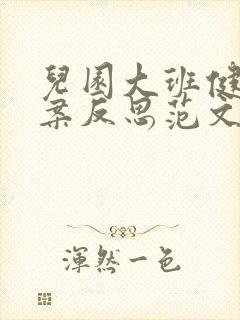 兒園大班健
案反思范文
渾然一色